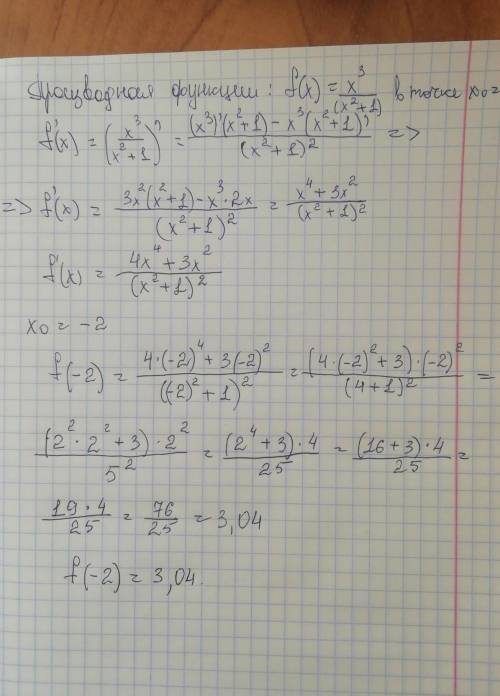 Производная функции: f(x) = x³/(x²+1) в точке x₀=
f'(x) = (x³/(x²+1))' = ((x³)'(x²+1) - x³(x²+1)')/(x²+1)² =>
=> f'(x) = (3x²(x²+1) - x³·2x)/(x²+1)² = (x⁴+3x²)/(x²+1)²
f'(x) = (4x⁴+3x²)/(x²+1)²
x₀ = -2
f(-2) = (4·(-2)⁴+3(-2)²)/((-2)²+1)² = ((4·(-2)²+3)·(-2)²)/(4+1)² =
((2²·2²+3)·2²)/5² = ((2⁴+3)·4)/25 = ((16+3)·4)/25 =
(19·4)/25 = 76/25 = 3,04
f(-2) = 3,04.